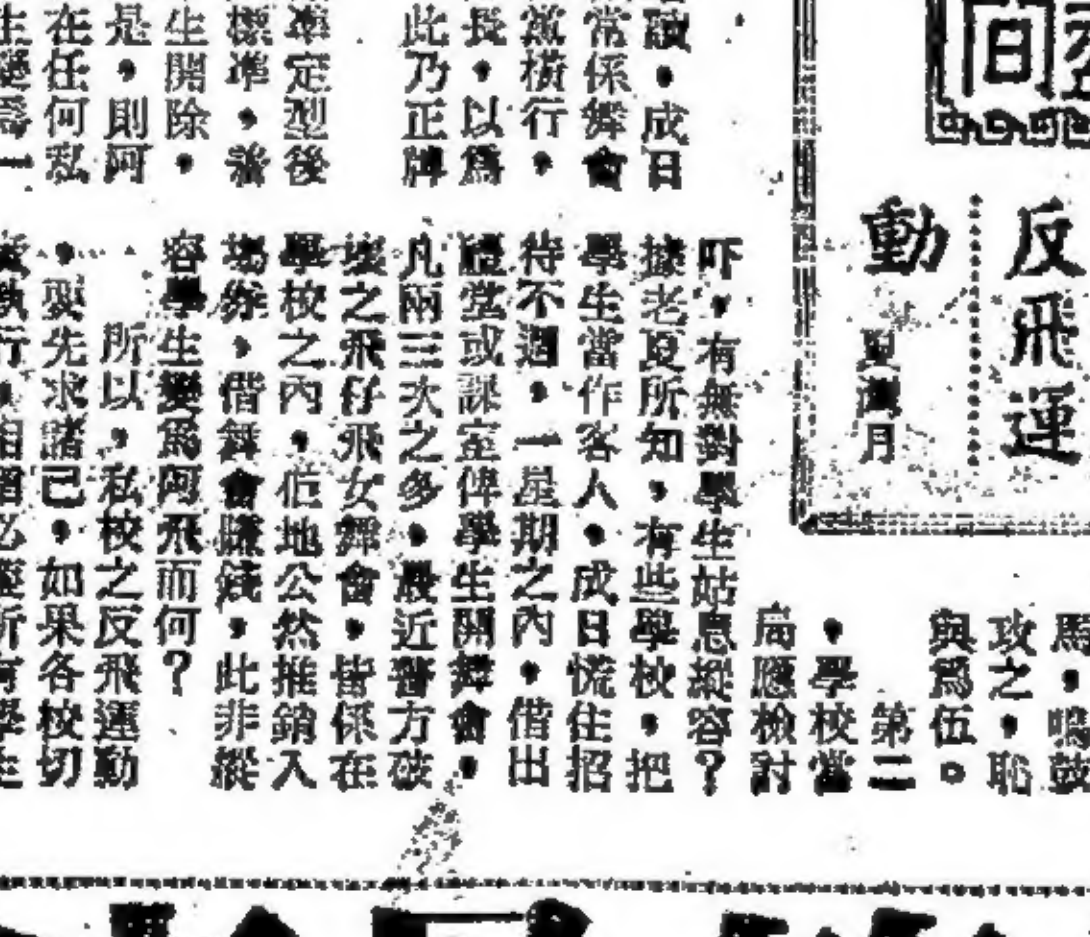 反飛運
動
夏灣月
馬，鳴鼓
攻之，恥
與爲伍。
第二
，學校當
局應檢討
吓，有無對學生姑息縱容？
據老夏所知，有些學校，把
學生當作客人，成日慌住招
待不週，一星期之內，借出
禮堂或課室俾學生開舞會，
凡兩三次之多，最近警方破
壞之飛仔飛女舞會，皆係在
學校之內，佢地公然推銷入
塲券，借舞會賺錢，此非縱
容學生變爲阿飛而何？
所以，私校之反飛運動
，要先求諸己，如果各校切
讀，成日
常係舞會
黨橫行，
長，以爲
此乃正牌
準定型後
標準，
生開除，
是，則阿
在任何私